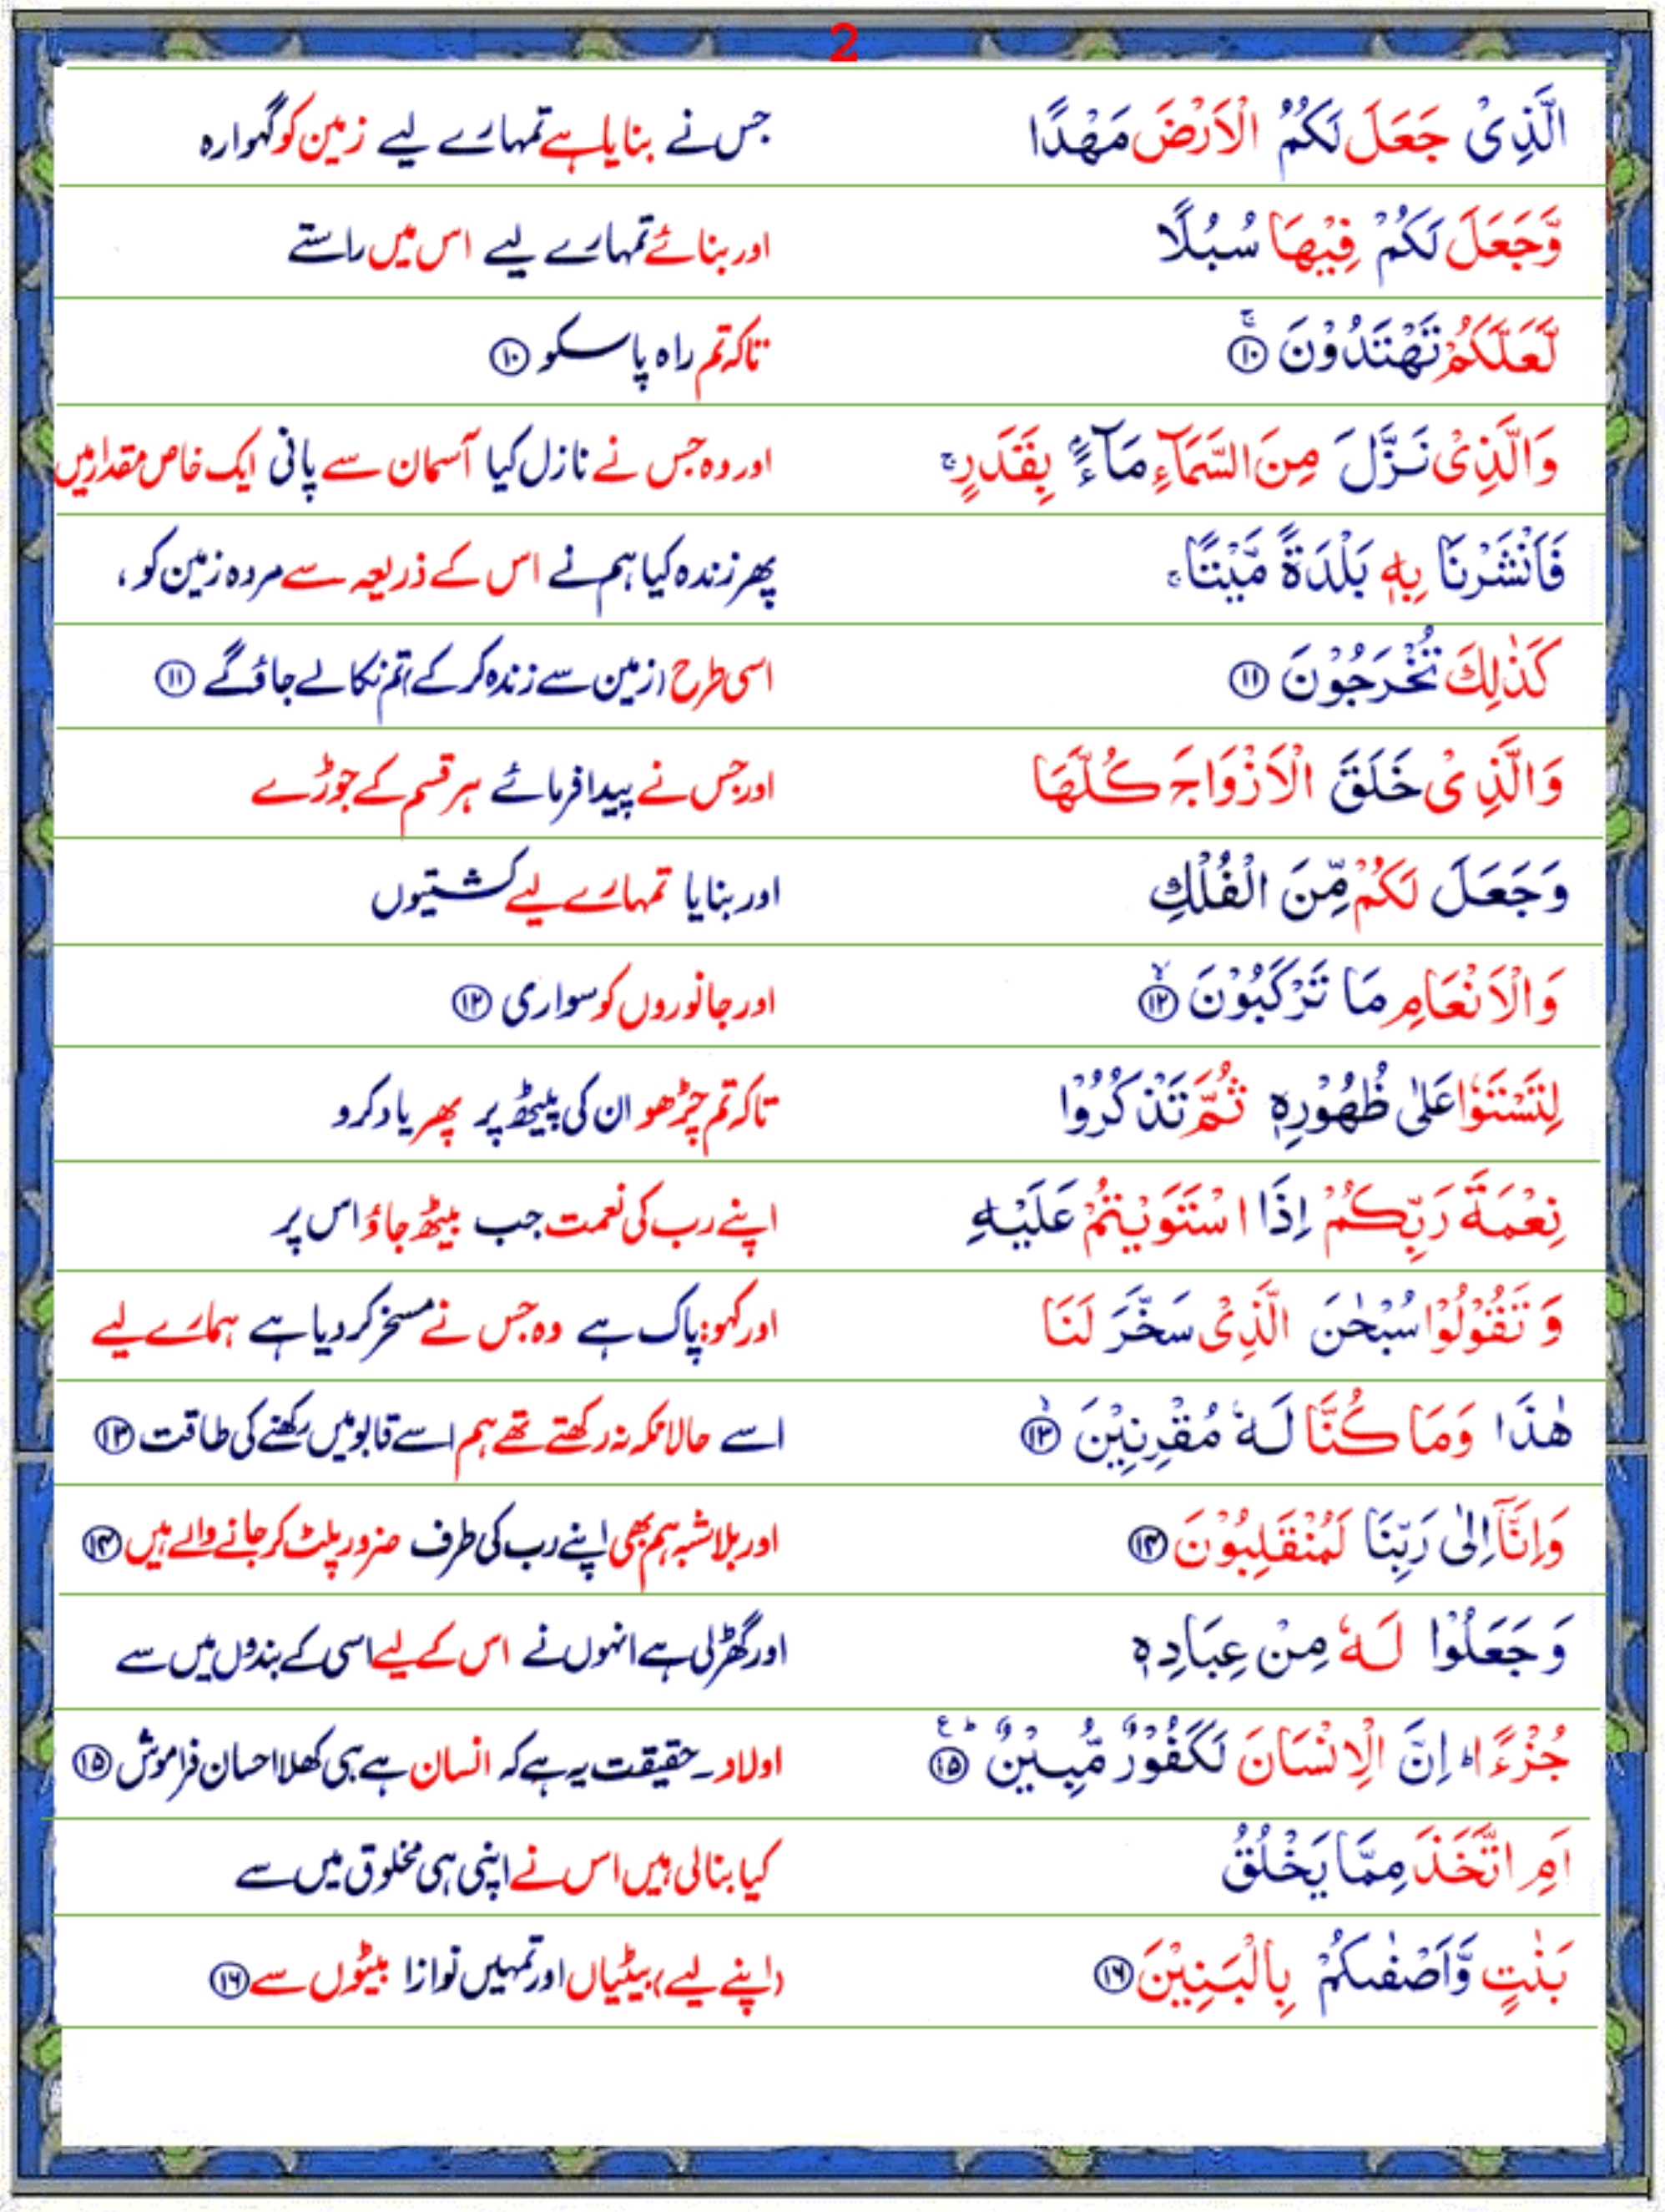 2
الَّذِیْ جَعَلَ لَكُمُ الْاَرْضَ مَهْدًا جس نے بنایا ہے تمہارے لیے زمین کو گہوارہ
وَّجَعَلَ لَكُمْ فِیْهَا سُبُلًا اور بنائے تمہارے لیے اس میں راستے
لَّعَلَّكُمْ تَهْتَدُوْنَ ۚ﴿۱۰﴾ تاکہ تم راہ پا سکو ﴿۱۰﴾
وَالَّذِیْ نَزَّلَ مِنَ السَّمَآءِ مَآءًۢ بِقَدَرٍ ۚ اور وہ جس نے نازل کیا آسمان سے پانی ایک خاص مقدار میں
فَاَنْشَرْنَا بِهٖ بَلْدَةً مَّیْتًا ۚ پھر زندہ کیا ہم نے اس کے ذریعہ سے مردہ زمین کو ،
كَذٰلِكَ تُخْرَجُوْنَ ﴿۱۱﴾ اسی طرح (زمین سے زندہ کر کے) تم نکالے جاؤ گے ﴿۱۱﴾
وَالَّذِیْ خَلَقَ الْاَزْوَاجَ كُلَّهَا اور جس نے پیدا فرمائے ہر قسم کے جوڑے
وَجَعَلَ لَكُمْ مِّنَ الْفُلْكِ اور بنایا تمہارے لیے کشتیوں
وَالْاَنْعَامِ مَا تَرْكَبُوْنَ ۙ﴿۱۲﴾ اور جانوروں کو سواری ﴿۱۲﴾
لِتَسْتَوٗا عَلٰی ظُهُوْرِهٖ ثُمَّ تَذْكُرُوْا تاکہ تم چڑھو ان کی پیٹھ پر پھر یاد کرو
نِعْمَةَ رَبِّكُمْ اِذَا اسْتَوَیْتُمْ عَلَیْهِ اپنے رب کی نعمت جب بیٹھ جاؤ اس پر
وَ تَقُوْلُوْا سُبْحٰنَ الَّذِیْ سَخَّرَ لَنَا اور کہو: پاک ہے وہ جس نے مسخر کر دیا ہے ہمارے لیے
هٰذَا وَمَا كُنَّا لَهٗ مُقْرِنِیْنَ ۙ﴿۱۳﴾ اسے حالانکہ نہ رکھتے تھے ہم اسے قابو میں رکھنے کی طاقت ﴿۱۳﴾
وَاِنَّاۤ اِلٰی رَبِّنَا لَمُنْقَلِبُوْنَ ﴿۱۴﴾ اور بلا شبہ ہم بھی اپنے رب کی طرف ضرور پلٹ کر جانے والے ہیں ﴿۱۴﴾
وَ جَعَلُوْا لَهٗ مِنْ عِبَادِهٖ اور گھڑ لی ہے انہوں نے اس کے لیے اسی کے بندوں میں سے
جُزْءًا ؕ اِنَّ الْاِنْسَانَ لَكَفُوْرٌ مُّبِیْنٌ ؕ﴿۱۵﴾ ع اولاد۔ حقیقت یہ ہے کہ انسان ہے ہی کھلا احسان فراموش ﴿۱۵﴾
اَمِ اتَّخَذَ مِمَّا یَخْلُقُ کیا بنالی ہیں اس نے اپنی ہی مخلوق میں سے
بَنٰتٍ وَّاَصْفٰىكُمْ بِالْبَنِیْنَ ﴿۱۶﴾ (اپنے لیے) بیٹیاں اور تمہیں نوازا بیٹوں سے ﴿۱۶﴾